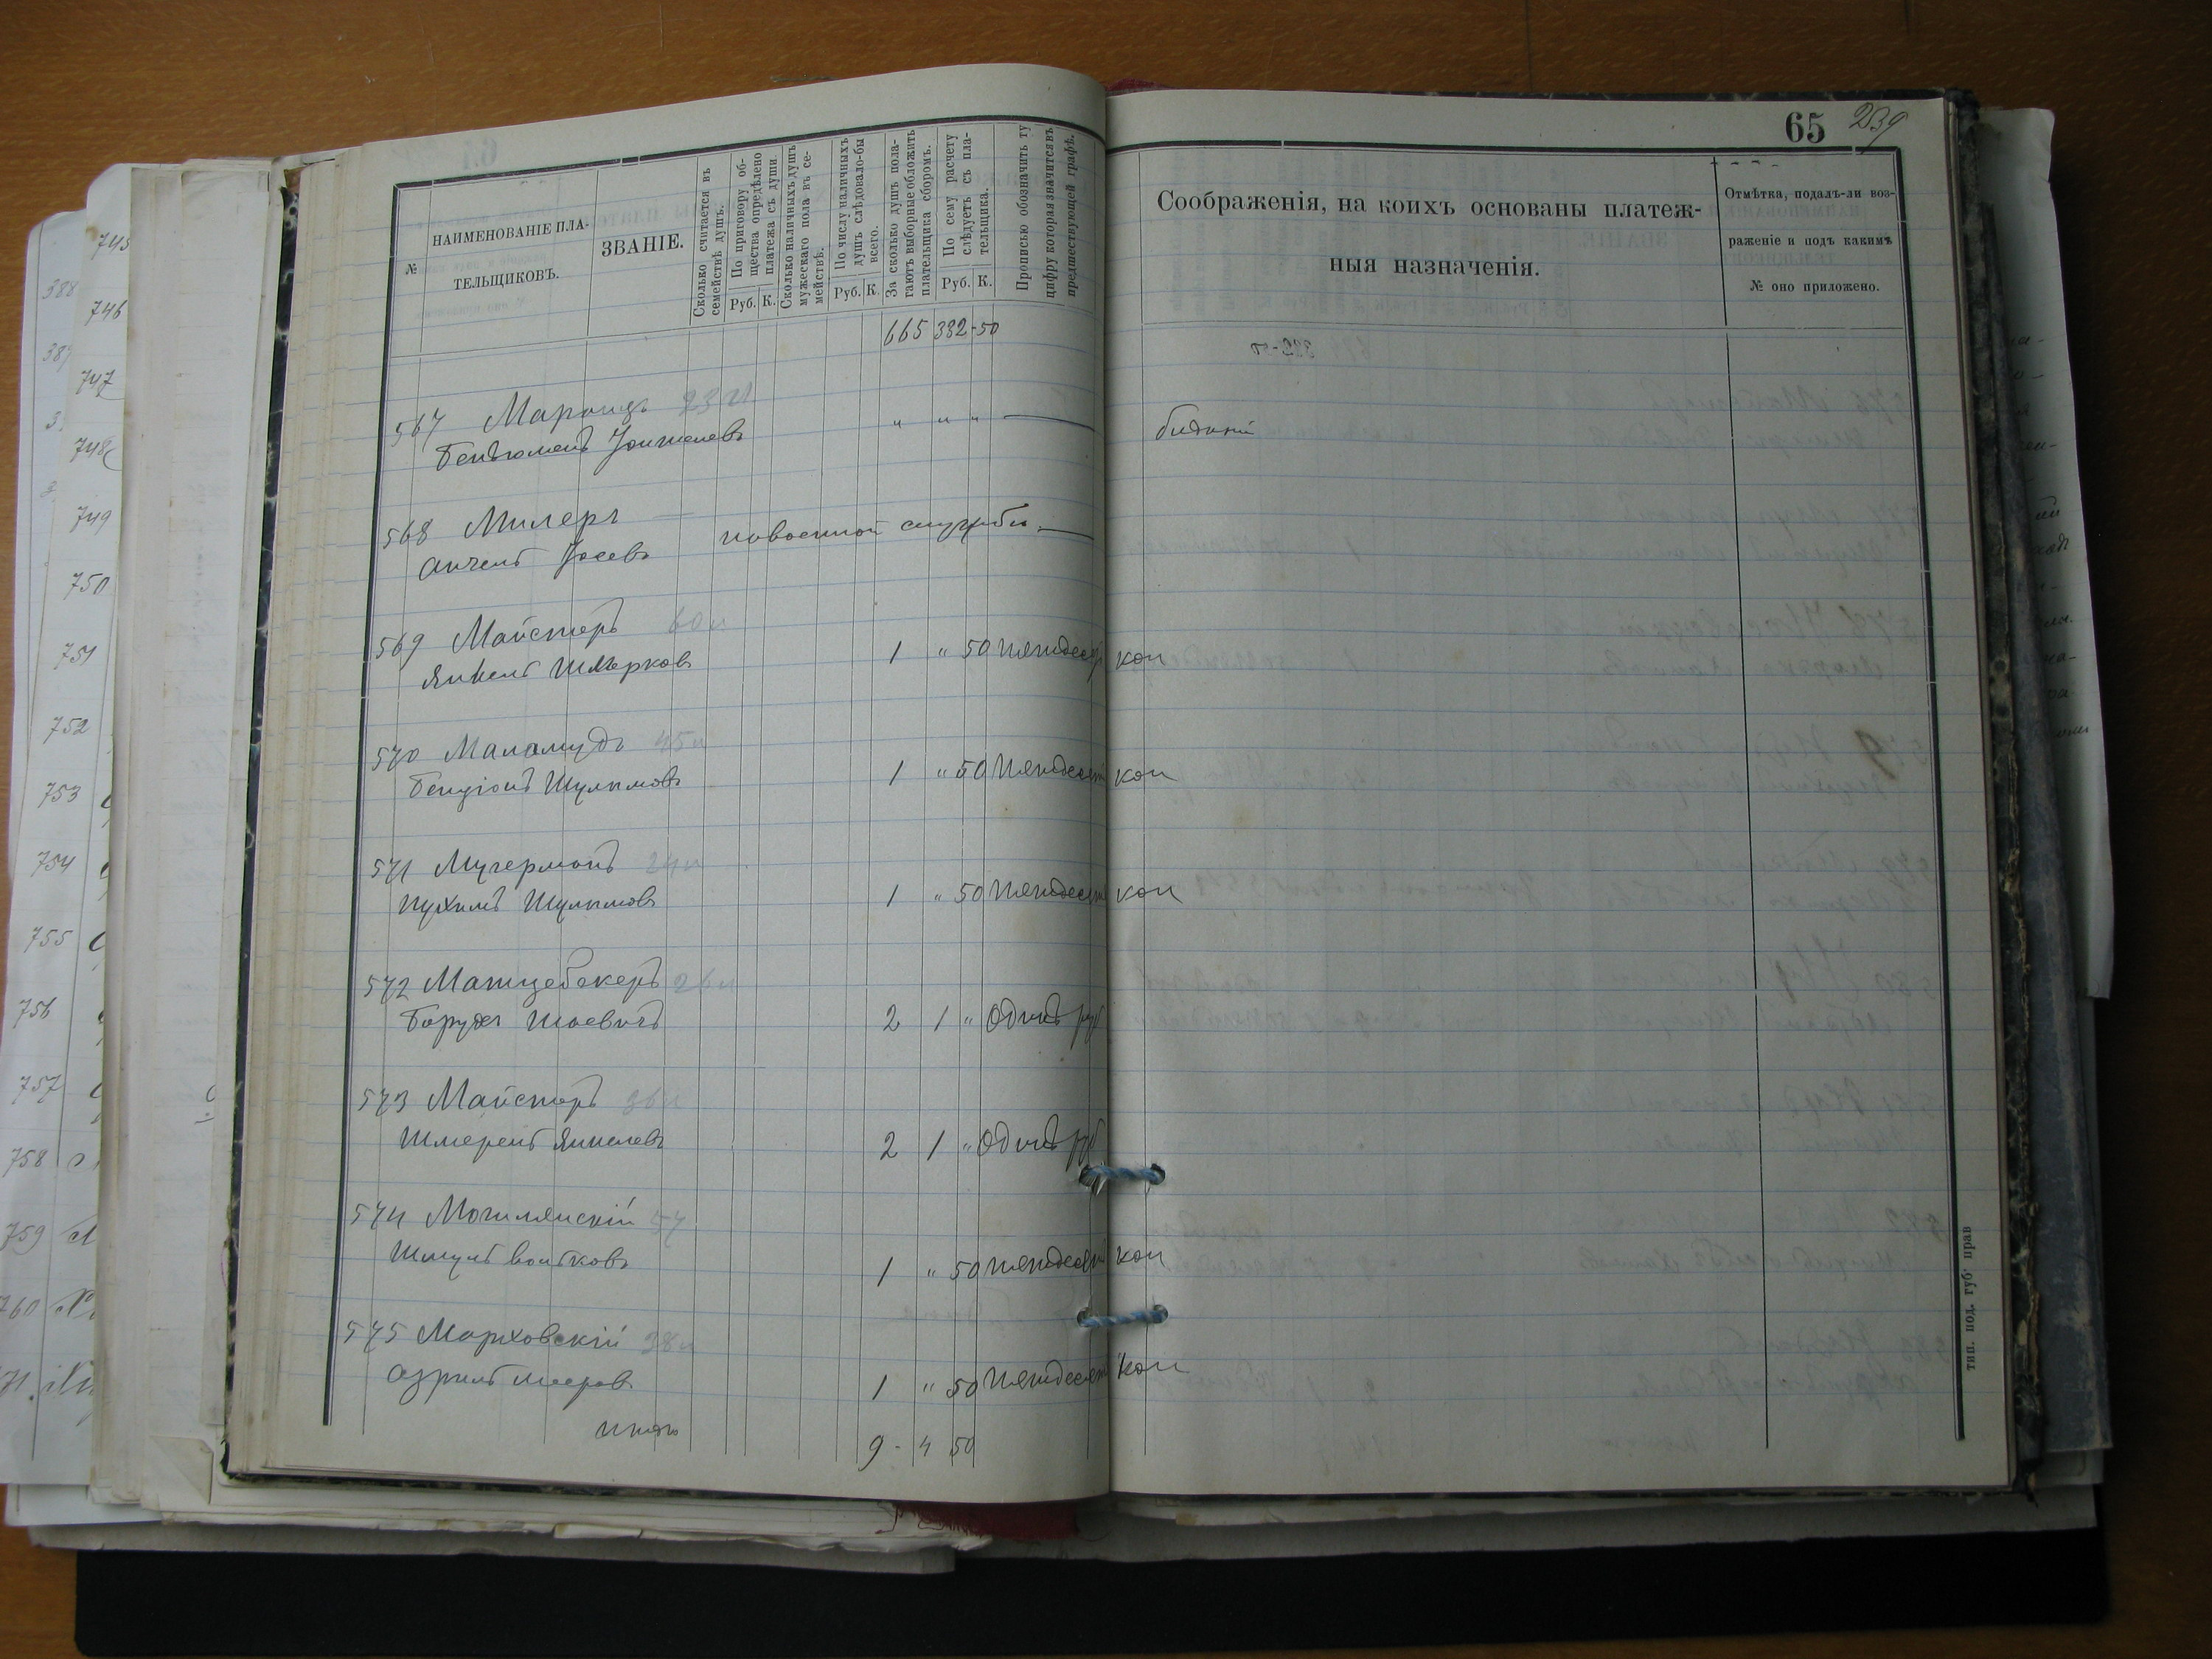 65 239
№
НАИМЕНОВАНІЕ ПЛА-
ТЕЛЬЩИКОВЪ.
ЗВАНІЕ.
Сколько считается въ
семействѣ душъ.
По приговору об-
щества опредѣлено
платежа съ души.
Руб. К.
Сколько наличныхъ душъ
мужескаго пола въ се-
мействѣ.
По числу наличныхъ
душъ слѣдовало-бы
всего.
Руб. К.
За сколько душъ пола-
гаютъ выборные обложить
плательщика сборомъ.
По сему расчету
слѣдуетъ съ пла-
тельщика.
Руб. К.
Прописью обозначить ту
цифру которая значится въ
предшествующей графѣ.
Соображенія, на коихъ основаны платеж-
ныя назначенія.
Отмѣтка, подалъ-ли воз-
раженіе и подъ какимъ
№ оно приложено.
665 332-50
567 23
" " "
568 Милеръ
Анчелъ Іосевъ
569 Майстеръ 60
Янкель Шмерковъ 1 " 50 пятдесятъ коп
570 Маламудъ 45
Бенціонъ Шулымовъ 1 " 50 пятдесятъ коп
571 24
Нухимъ Шулымовъ 1 " 50 пятдесятъ коп
572 Матцебекеръ 26
Борухъ 2 1 " Одинъ руб
573 Майстеръ 36
Шмерелъ Янкелевъ 2 1 " Одинъ руб
574 Могилянскій 57
Шмулъ Волковъ 1 " 50 пятдесятъ коп
575 Марховскій 38
Азрилъ Мееровъ 1 " 50 пятдесятъ коп
итого 9 - 4 50
тип. под. губ. прав
745
746
747
748
749
750
751
752
753
754
755
756
757
758
759
760